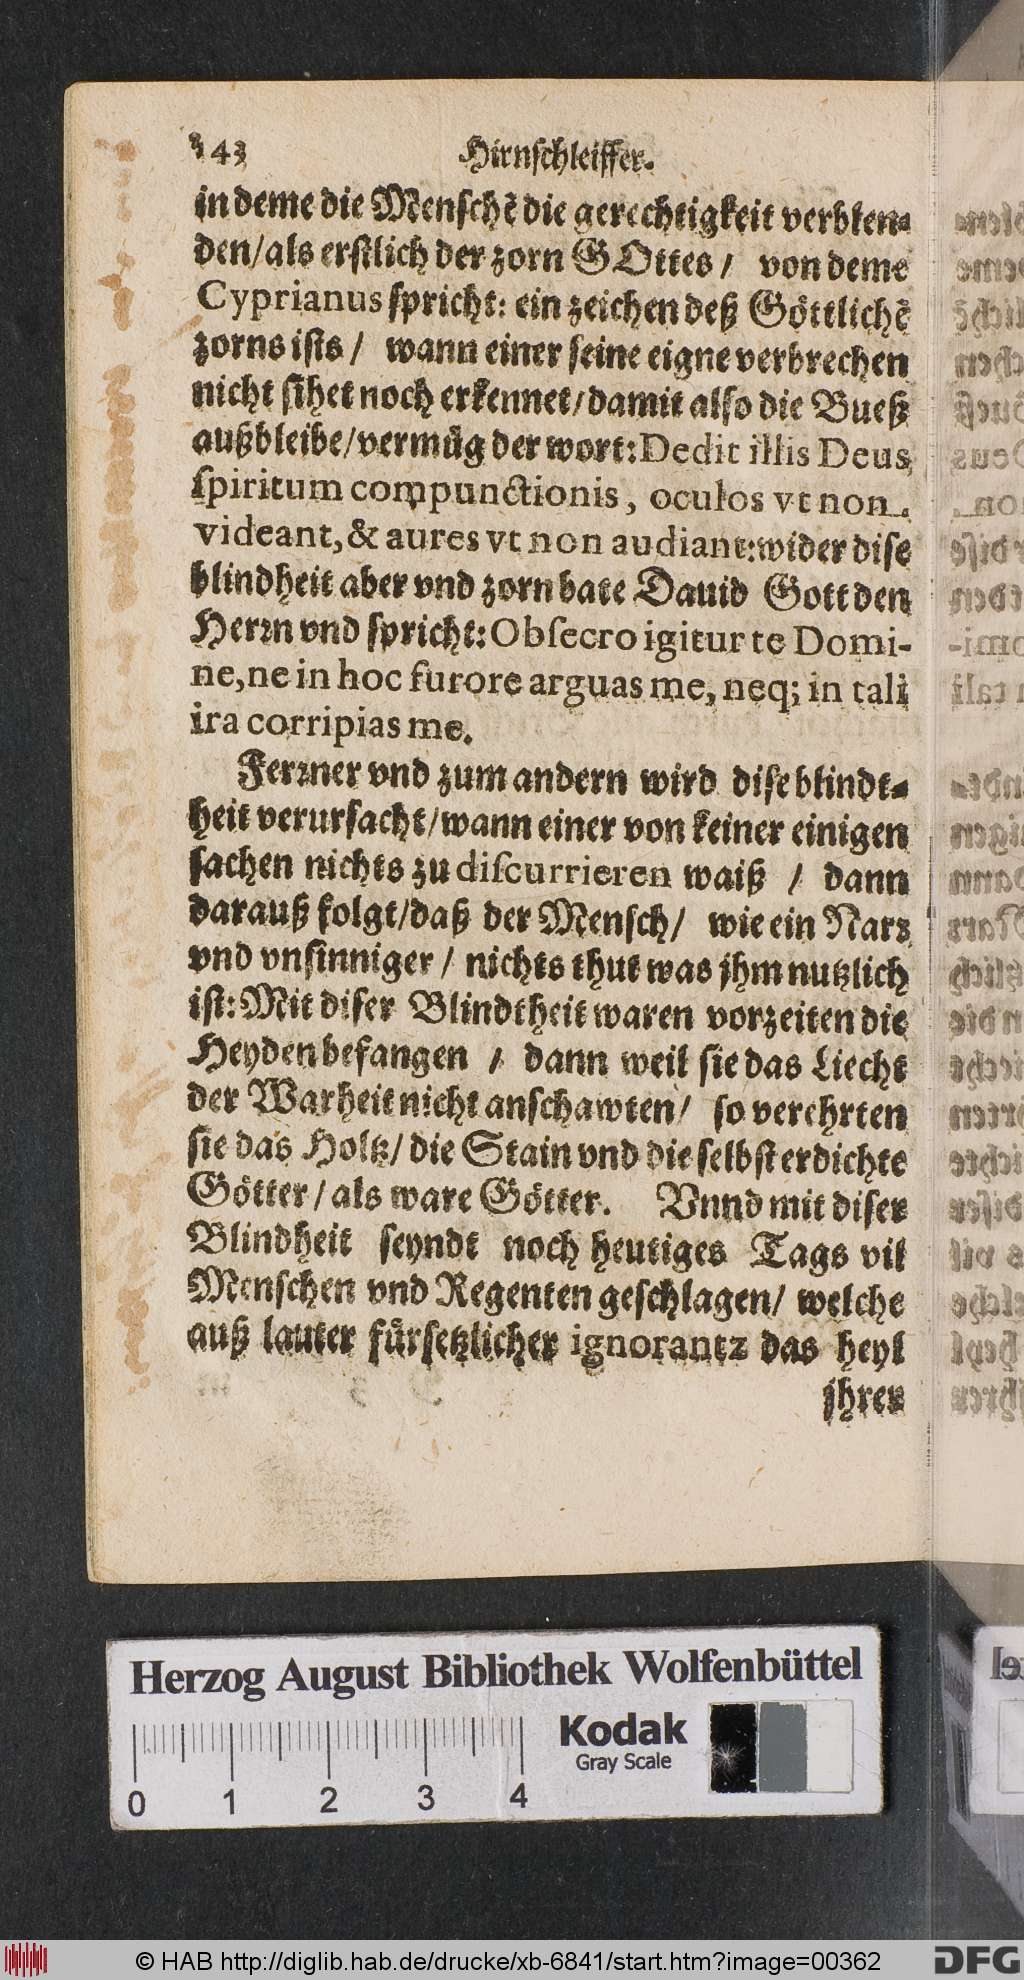 343
Hirnschleiffer.
in deme die Menschẽ die gerechtigkeit verblen⸗
den/als erstlich der zorn GOttes/ von deme
Cyprianus spricht: ein zeichen deß Göttlichẽ
zorns ists/ wann einer seine eigne verbrechen
nicht sihet noch erkennet/damit also die Bueß
außbleibe/vermüg der wort: Dedit illis Deus
spiritum compunctionis, oculos vt non
videant, & aures vt non audiant: wider dise
blindheit aber vnd zorn bate Dauid Gott den
Herꝛn vnd spricht: Obsecro igitur te Domi-
ne, ne in hoc furore arguas me, neq; in tali
ira corripias me.
Ferꝛner vnd zum andern wird dise blindt⸗
heit verursacht/wann einer von keiner einigen
sachen nichts zu discurrieren waiß / dann
darauß folgt/daß der Mensch/ wie ein Narꝛ
vnd vnsinniger / nichts thut was jhm nutzlich
ist: Mit diser Blindtheit waren vorzeiten die
Heyden befangen / dann weil sie das Liecht
der Warheit nicht anschawten/ so verehrten
sie das Holtz/ die Stain vnd die selbst erdichte
Götter/ als ware Götter. Vnnd mit diser
Blindheit seyndt noch heutiges Tags vil
Menschen vnd Regenten geschlagen/ welche
auß lauter fürsetzlicher ignorantz das heyl
jhrer
Herzog August Bibliothek Wolfenbüttel
Kodak
Gray Scale
0 1 2 3 4
© HAB http://diglib.hab.de/drucke/xb-6841/start.htm?image=00362
DFG